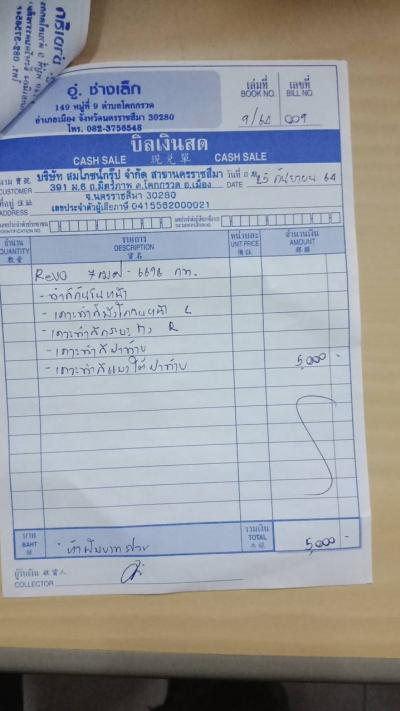 อู่. ช่างเล็ก
149 หมู่ที่ 9 ตำบลโคกกรวด
อำเภอเมือง จังหวัดนครราชสีมา 30280
โทร. 082-3756545
เล่มที่ เลขที่
BOOK NO. BILL NO.
9/64 009
บิลเงินสด
CASH SALE 現兌單 CASH SALE
นาม
CUSTOMER บริษัท สมโภชน์กรุ๊ป จำกัด สาขานครราชสีมา
วันที่ 25 กันยายน 64
DATE
ที่อยู่ 住址
ADDRESS
391 ม.6 ถ.มิตรภาพ ต.โคกกรวด อ.เมือง
จ.นครราชสีมา 30280
เลขประจำตัวผู้เสียภาษี 0415562000021
จำนวน รายการ หน่วยละ จำนวนเงิน
QUANTITY DESCRIPTION UNIT PRICE AMOUNT
數量 貨名 價銀
Revo 6696 กท.
- ทำสีกันชนหน้า
- เคาะทำสี L
- เคาะทำสี R
- เคาะทำสีฝาท้าย
- เคาะทำสี ใต้ฝาท้าย 5,000 -
บาท รวมเงิน
BAHT ห้าพันบาทถ้วน TOTAL 5,000 -
ผู้รับเงิน 收貨人
COLLECTOR